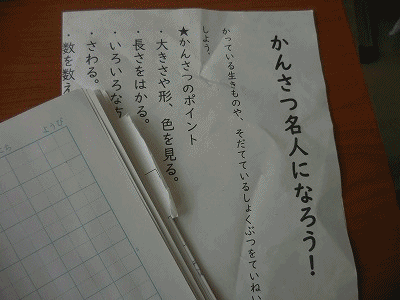 かんさつ名人になろう！
かっている生きものや、そだてているしょくぶつをていねい
しよう。
★かんさつのポイント
・大きさや形、色を見る。
・長さをはかる。
・いろいろな
・さわる。
・数を数え
ようび